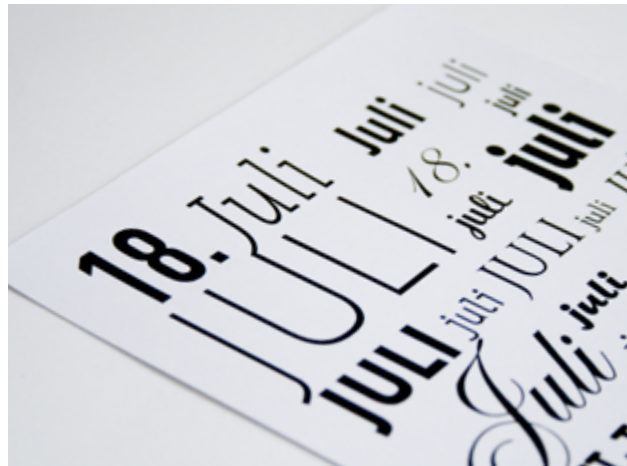 18. Juli Juli juli
juli
18. juli
JULI juli juli
JULI
JULI juli juli
Juli